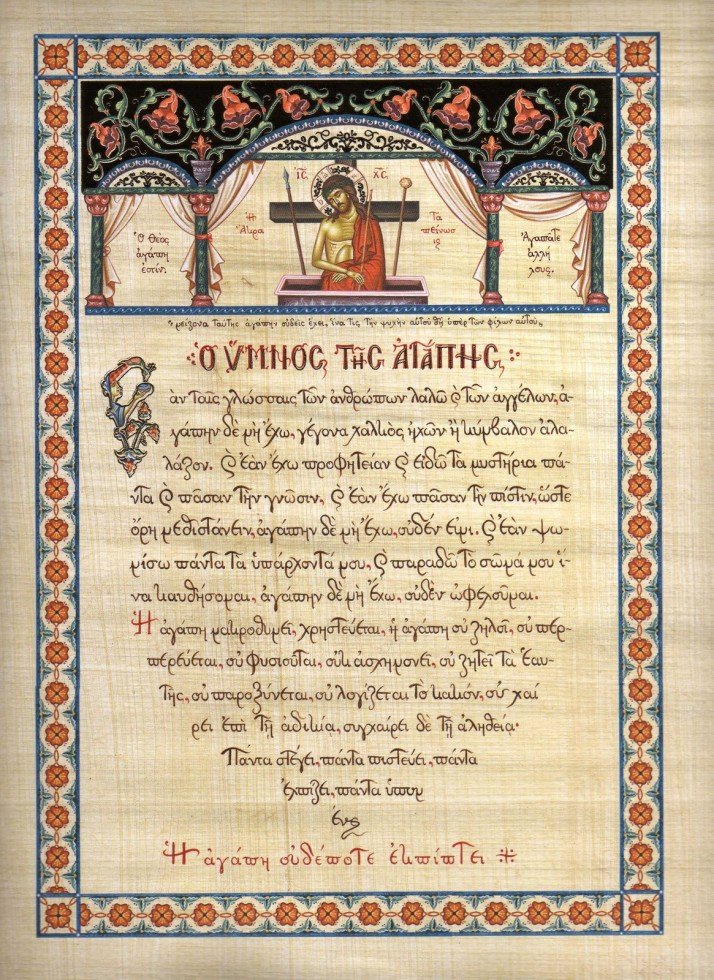 ΙϹ ΧϹ
Ὁ Θεὸς
ἀγάπη
ἐστίν.
Ἡ
Ἄκρα
Τα
πείνωσ
ις
Ἀγαπᾶτε
ἀλλή
λους.
μείζονα ταύτης ἀγάπην οὐδεὶς ἔχει, ἵνα τις τὴν ψυχὴν αὐτοῦ θῇ ὑπὲρ τῶν φίλων αὐτοῦ.
Ὁ ὝΜΝΟΣ ΤῆΣ ἈΓΆΠΗΣ
Ἐὰν ταῖς γλώσσαις τῶν ἀνθρώπων λαλῶ ϗ τῶν ἀγγέλων, ἀ-
γάπην δὲ μὴ ἔχω, γέγονα χαλκὸς ἠχῶν ἢ κύμβαλον ἀλα-
λάζον. ϗ ἐὰν ἔχω προφητείαν ϗ εἰδῶ τὰ μυστήρια πά-
ντα ϗ πᾶσαν τὴν γνῶσιν, ϗ ἐὰν ἔχω πᾶσαν τὴν πίστιν, ὥστε
ὄρη μεθιστάνειν, ἀγάπην δὲ μὴ ἔχω, οὐδέν εἰμι. ϗ ἐὰν ψω-
μίσω πάντα τὰ ὑπάρχοντά μου, ϗ παραδῶ τὸ σῶμά μου ἵ-
να καυθήσομαι, ἀγάπην δὲ μὴ ἔχω, οὐδὲν ὠφελοῦμαι.
Ἡ ἀγάπη μακροθυμεῖ, χρηστεύεται, ἡ ἀγάπη οὐ ζηλοῖ, οὐ περ-
περεύεται, οὐ φυσιοῦται, οὐκ ἀσχημονεῖ, οὐ ζητεῖ τὰ ἑαυ-
τῆς, οὐ παροξύνεται, οὐ λογίζεται τὸ κακόν, οὐ χαί
ρει ἐπὶ τῇ ἀδικίᾳ, συγχαίρει δὲ τῇ ἀληθείᾳ.
Πάντα στέγει, πάντα πιστεύει, πάντα
ἐλπίζει, πάντα ὑπομ
ένει
Ἡ ἀγάπη οὐδέποτε ἐκπίπτει